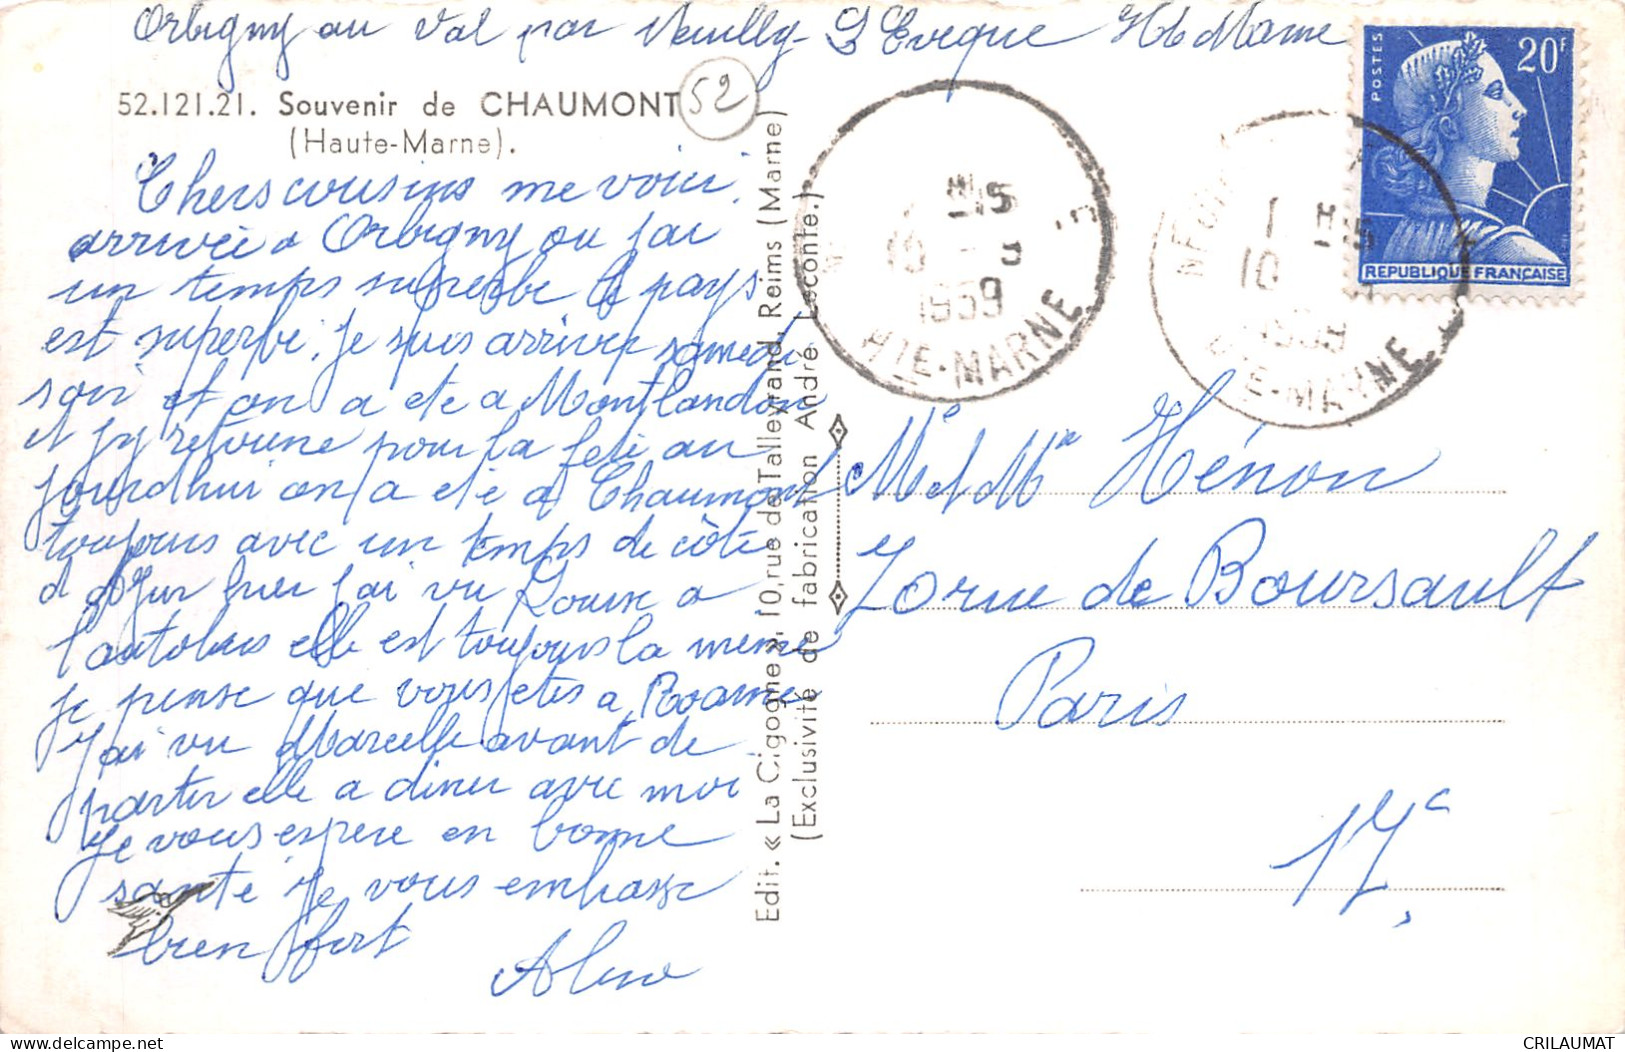 Orbigny au Val par Neuilly L Eveque Hte Marne
52.121.21. Souvenir de CHAUMONT
(Haute-Marne).
52
Chers cousins me voici
arrivée a Orbigny ou j'ai
un temps superbe le pays
est superbe. Je suis arrivée samedi
soir et on a ete a Montlandon
et j'y retourne pour la fete au
jourdhui on a ete a Chaumont
toujours avec un temps de côte
d Azur hier j'ai vu Louise a
l'autobus elle est toujours la meme
je pense que vous etes a Roanne
J'ai vu Marcelle avant de
partir elle a diner avec moi
Je vous espere en bonne
santé Je vous embrasse
bien fort
Edit. « La Cigogne », 10, rue de Talleyrand, Reims (Marne)
(Exclusivité de fabrication André Leconte.)
15
10 - 3
1959
HTE-MARNE
1 H 15
10
1959
HTE-MARNE
POSTES
20F
REPUBLIQUE FRANÇAISE
Mr et Me Hénon
Rue de Boursault
Paris
17e
CRILAUMAT